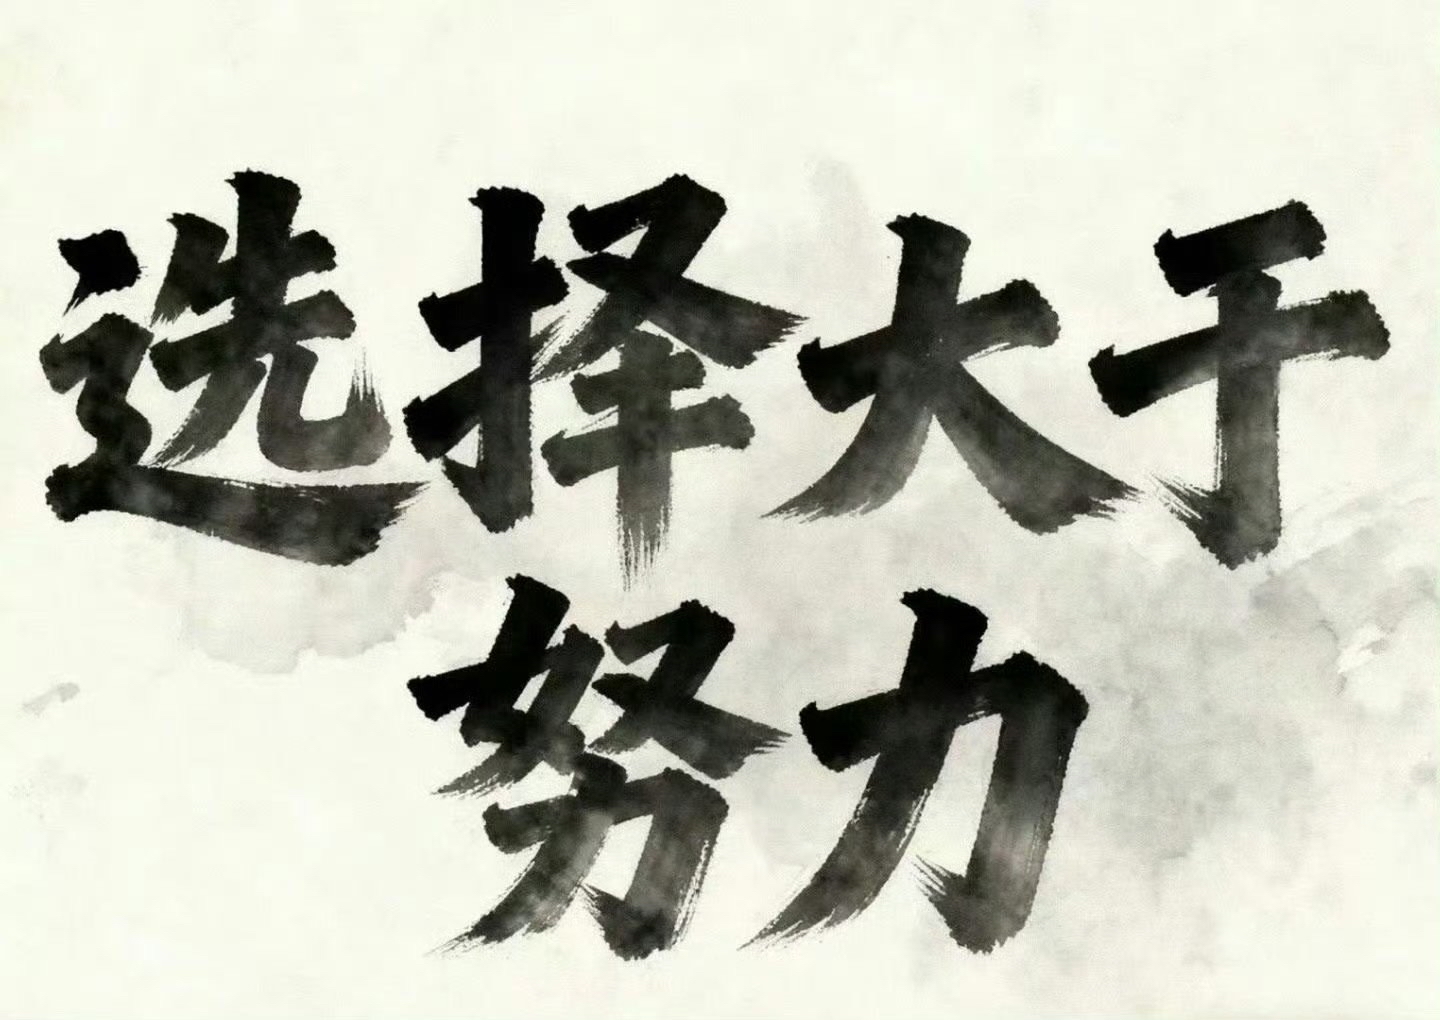 选择大干
努力